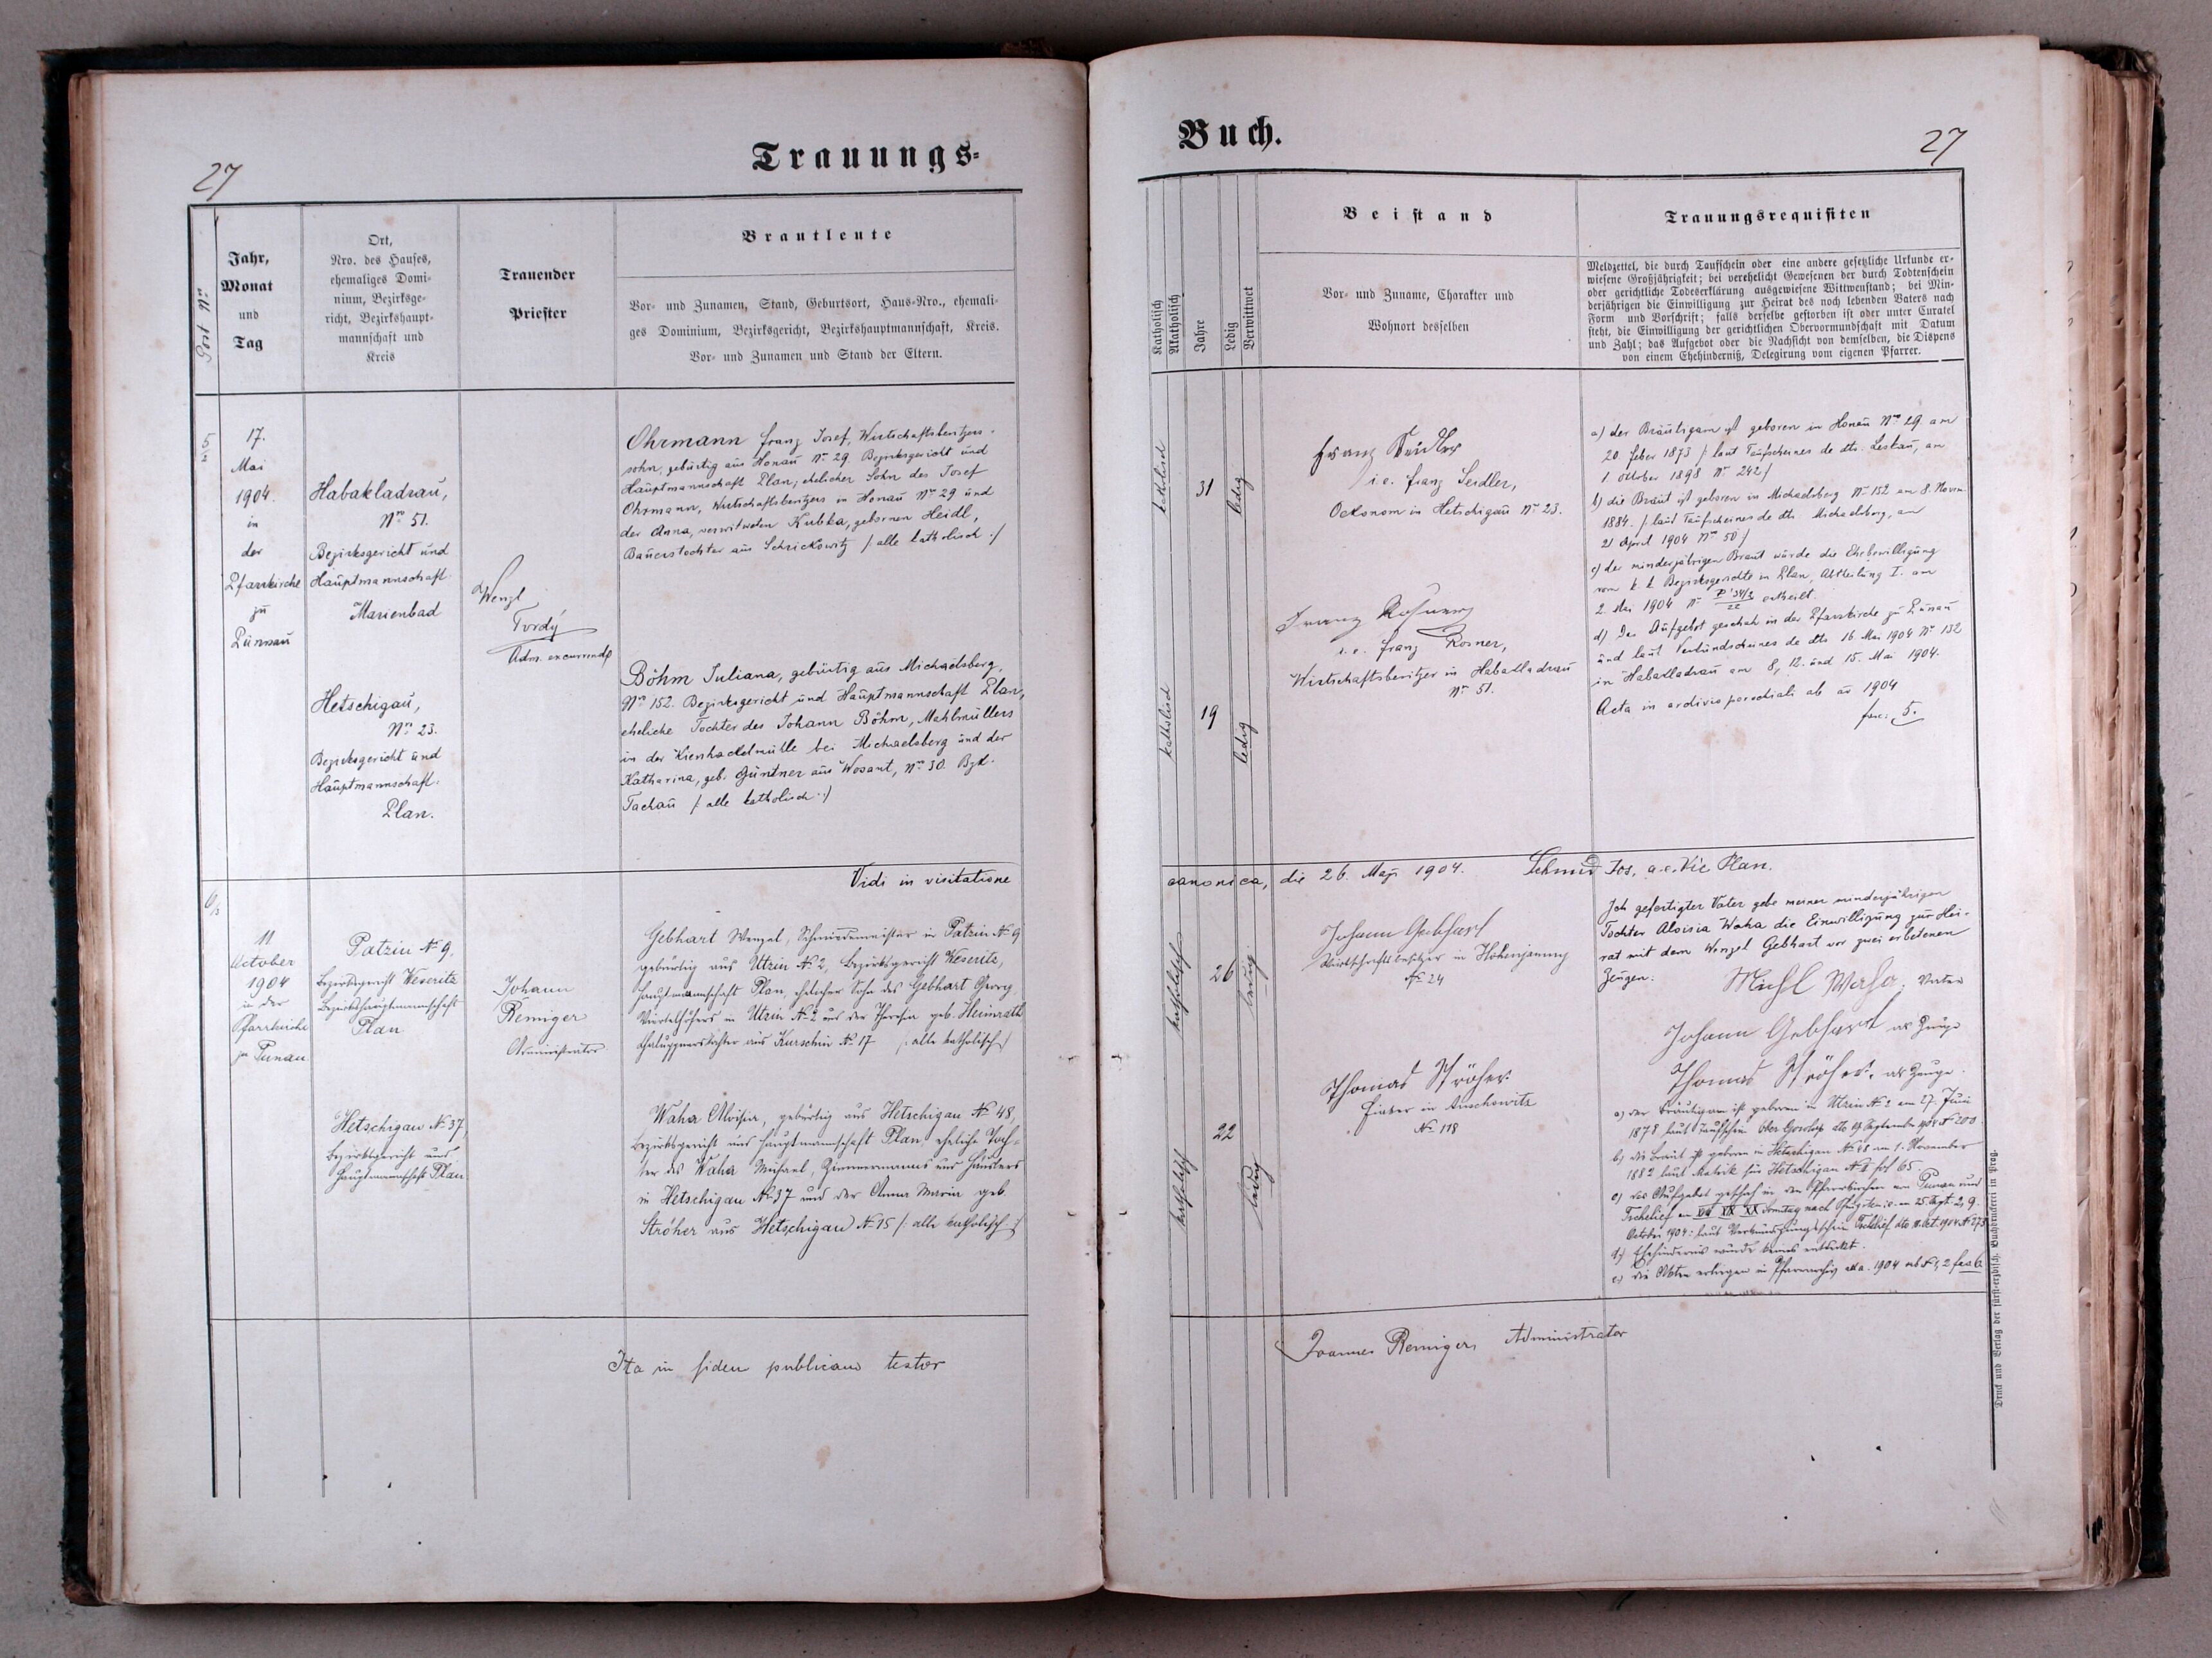 27
Trauungs-
Post Nro
Jahr,
Monat
und
Tag
Ort,
Nro. des Hauses,
ehemaliges Domi-
nium, Bezirksge-
richt, Bezirkshaupt-
mannschaft und
Kreis
Trauender
Priester
Brautleute
Vor- und Zunamen, Stand, Geburtsort, Haus-Nro., ehemali-
ges Dominium, Bezirksgericht, Bezirkshauptmannschaft, Kreis.
Vor- und Zunamen und Stand der Eltern.
5
17.
Mai
1904.
in
der
Pfarrkirche
zu
Punnau
Habakladrau,
Nro 51.
Bezirksgericht und
Hauptmannschaft
Marienbad
Hetschigau,
Nro 23.
Bezirksgericht und
Hauptmannschaft.
Plan.
Wenzl
Tvrdý
Adm. excurrendo
Ohrmann Franz Josef, Wirtschaftsbesitzers-
sohn, gebürtig aus Honau Nr 29. Bezirksgericht und
Hauptmannschaft Plan, ehelicher Sohn des Josef
Ohrmann, Wirtschaftsbesitzers in Honau Nro 29 und
der Anna, verwitweten Kubka, gebornen Heidl,
Bauerstochter aus Schrickowitz /: alle katholisch :/
Böhm Juliana, gebürtig aus Michaelsberg,
Nro 152. Bezirksgericht und Hauptmannschaft Plan,
eheliche Tochter des Johann Böhm, Mahlmüllers
in der Kienhackelmühle bei Michaelsberg und der
Katharina, geb. Güntner aus Wosant, Nro 30. Bzk.
Tachau /: alle katholisch :/
Vidi in visitatione
6
11
October
1904
in der
Pfarrkirche
zu Punau
Patzin No 9.
Bezirksgericht Weseritz
Bezirkshauptmannschaft
Plan
Hetschigau No 37,
Bezirksgericht und
Hauptmannschaft Plan
Johann
Remiger
Administrator
Gebhart Wenzel, Schmiedemeister in Patzin No 9
gebürtig aus Utzin No 2, Bezirksgericht Weseritz,
Hauptmannschaft Plan, ehelicher Sohn des Gebhart Georg
Viertelhöfers in Utzin No 2 und der Theresia geb. Heinrath
Chaluppnerstochter aus Kurschin No 17 /: alle katholisch :/
Waha Aloisia, gebürtig aus Hetschigau No 48,
Bezirksgericht und Hauptmannschaft Plan, eheliche Toch-
ter des Waha Michael, Zimmermanns und Häuslers
in Hetschigau No 37 und der Anna Maria geb.
Ströher aus Hetschigau No 15 /: alle katholisch :/
Ita in fidem publicam testor
Buch.
27
Katholisch
Akatholisch
Jahre
Ledig
Verwittwet
Beistand
Vor- und Zuname, Charakter und
Wohnort desselben
Trauungsrequisiten
Meldzettel, die durch Taufschein oder eine andere gesetzliche Urkunde er-
wiesene Großjährigkeit; bei verehelicht Gewesenen der durch Todtenschein
oder gerichtliche Todeserklärung ausgewiesene Wittwenstand; bei Min-
derjährigen die Einwilligung zur Heirat des noch lebenden Vaters nach
Form und Vorschrift; falls derselbe gestorben ist oder unter Curatel
steht, die Einwilligung der gerichtlichen Obervormundschaft mit Datum
und Zahl; das Aufgebot oder die Nachsicht von demselben, die Dispens
von einem Ehehinderniß, Delegirung vom eigenen Pfarrer.
katholisch
31
ledig
katholisch
19
ledig
Franz Seidler
i.e. Franz Seidler,
Oekonom in Hetschigau Nro 23.
Franz Rosner
i.e. Franz Rosner,
Wirtschaftsbesitzer in Habakladrau
Nro 51.
a) der Bräutigam ist geboren in Honau Nro 29. am
20. Feber 1873 /: laut Taufscheines de dto. Leskau, am
1. October 1898 Nro 242 /
b) die Braut ist geboren in Michaelsberg Nro 152 am 8. Novem.
1884. /: laut Taufscheines de dto. Michaelsberg, am
21 April 1904 Nro 50 /
c) der minderjährigen Braut wurde die Ehebewilligung
vom k. k. Bezirksgerichte in Plan, Abtheilung I. am
2. Mai 1904 Nr ertheilt.
d) Das Aufgebot geschah in der Pfarrkirche zu Punau
und laut Verkündscheines de dto 16 Mai 1904 Nro 132
in Habakladrau am 8, 12. und 15. Mai 1904.
Acta in archivio parochiali ab ao 1904
fasc: 5.
canonica, die 26. Maji 1904. Schmid Jos, a.e. Vic Plan.
katholisch
26
ledig
katholisch
22
ledig
Johann Gebhart
Wirtschaftsbesitzer in Hohenjamny
No 24
Thomas Ströher
Fiaker in Auschowitz
No 118
Ich gefertigter Vater gebe meiner minderjährigen
Tochter Aloisia Waha die Einwilligung zur Hei-
rat mit dem Wenzel Gebhart vor zwei erbetenen
Zeugen.
Michl Waha, Vater
Johann Gebhart als Zeuge
Thomas Ströher, als Zeuge.
a) der Bräutigam ist geboren in Utzin No 2 am 27. Juni
1878 laut Taufschein dto 19 September 1904 No 200
b) die Braut ist geboren in Hetschigau No 48 am 1. November
1882 laut Matrik für Hetschigau fol 65.
c) das Aufgebot geschah in den Pfarrkirchen von Punau und
Tschelief am XVIII XIX XX Sonntag nach Pfingsten i.e. am 25 Sept. 2, 9.
October 1904: laut Verkündigungsschein Tschelief dto 11. Oct. 1904 No 273
d) Ehehinderniss wurde keines entdeckt.
e) die Akten erliegen im Pfarrarchiv ad a. 1904 sub No 1, 2 fasc 6
Joannes Remiger, Administrator
Druck und Verlag der fürst-erzbisch. Buchdruckerei in Prag.